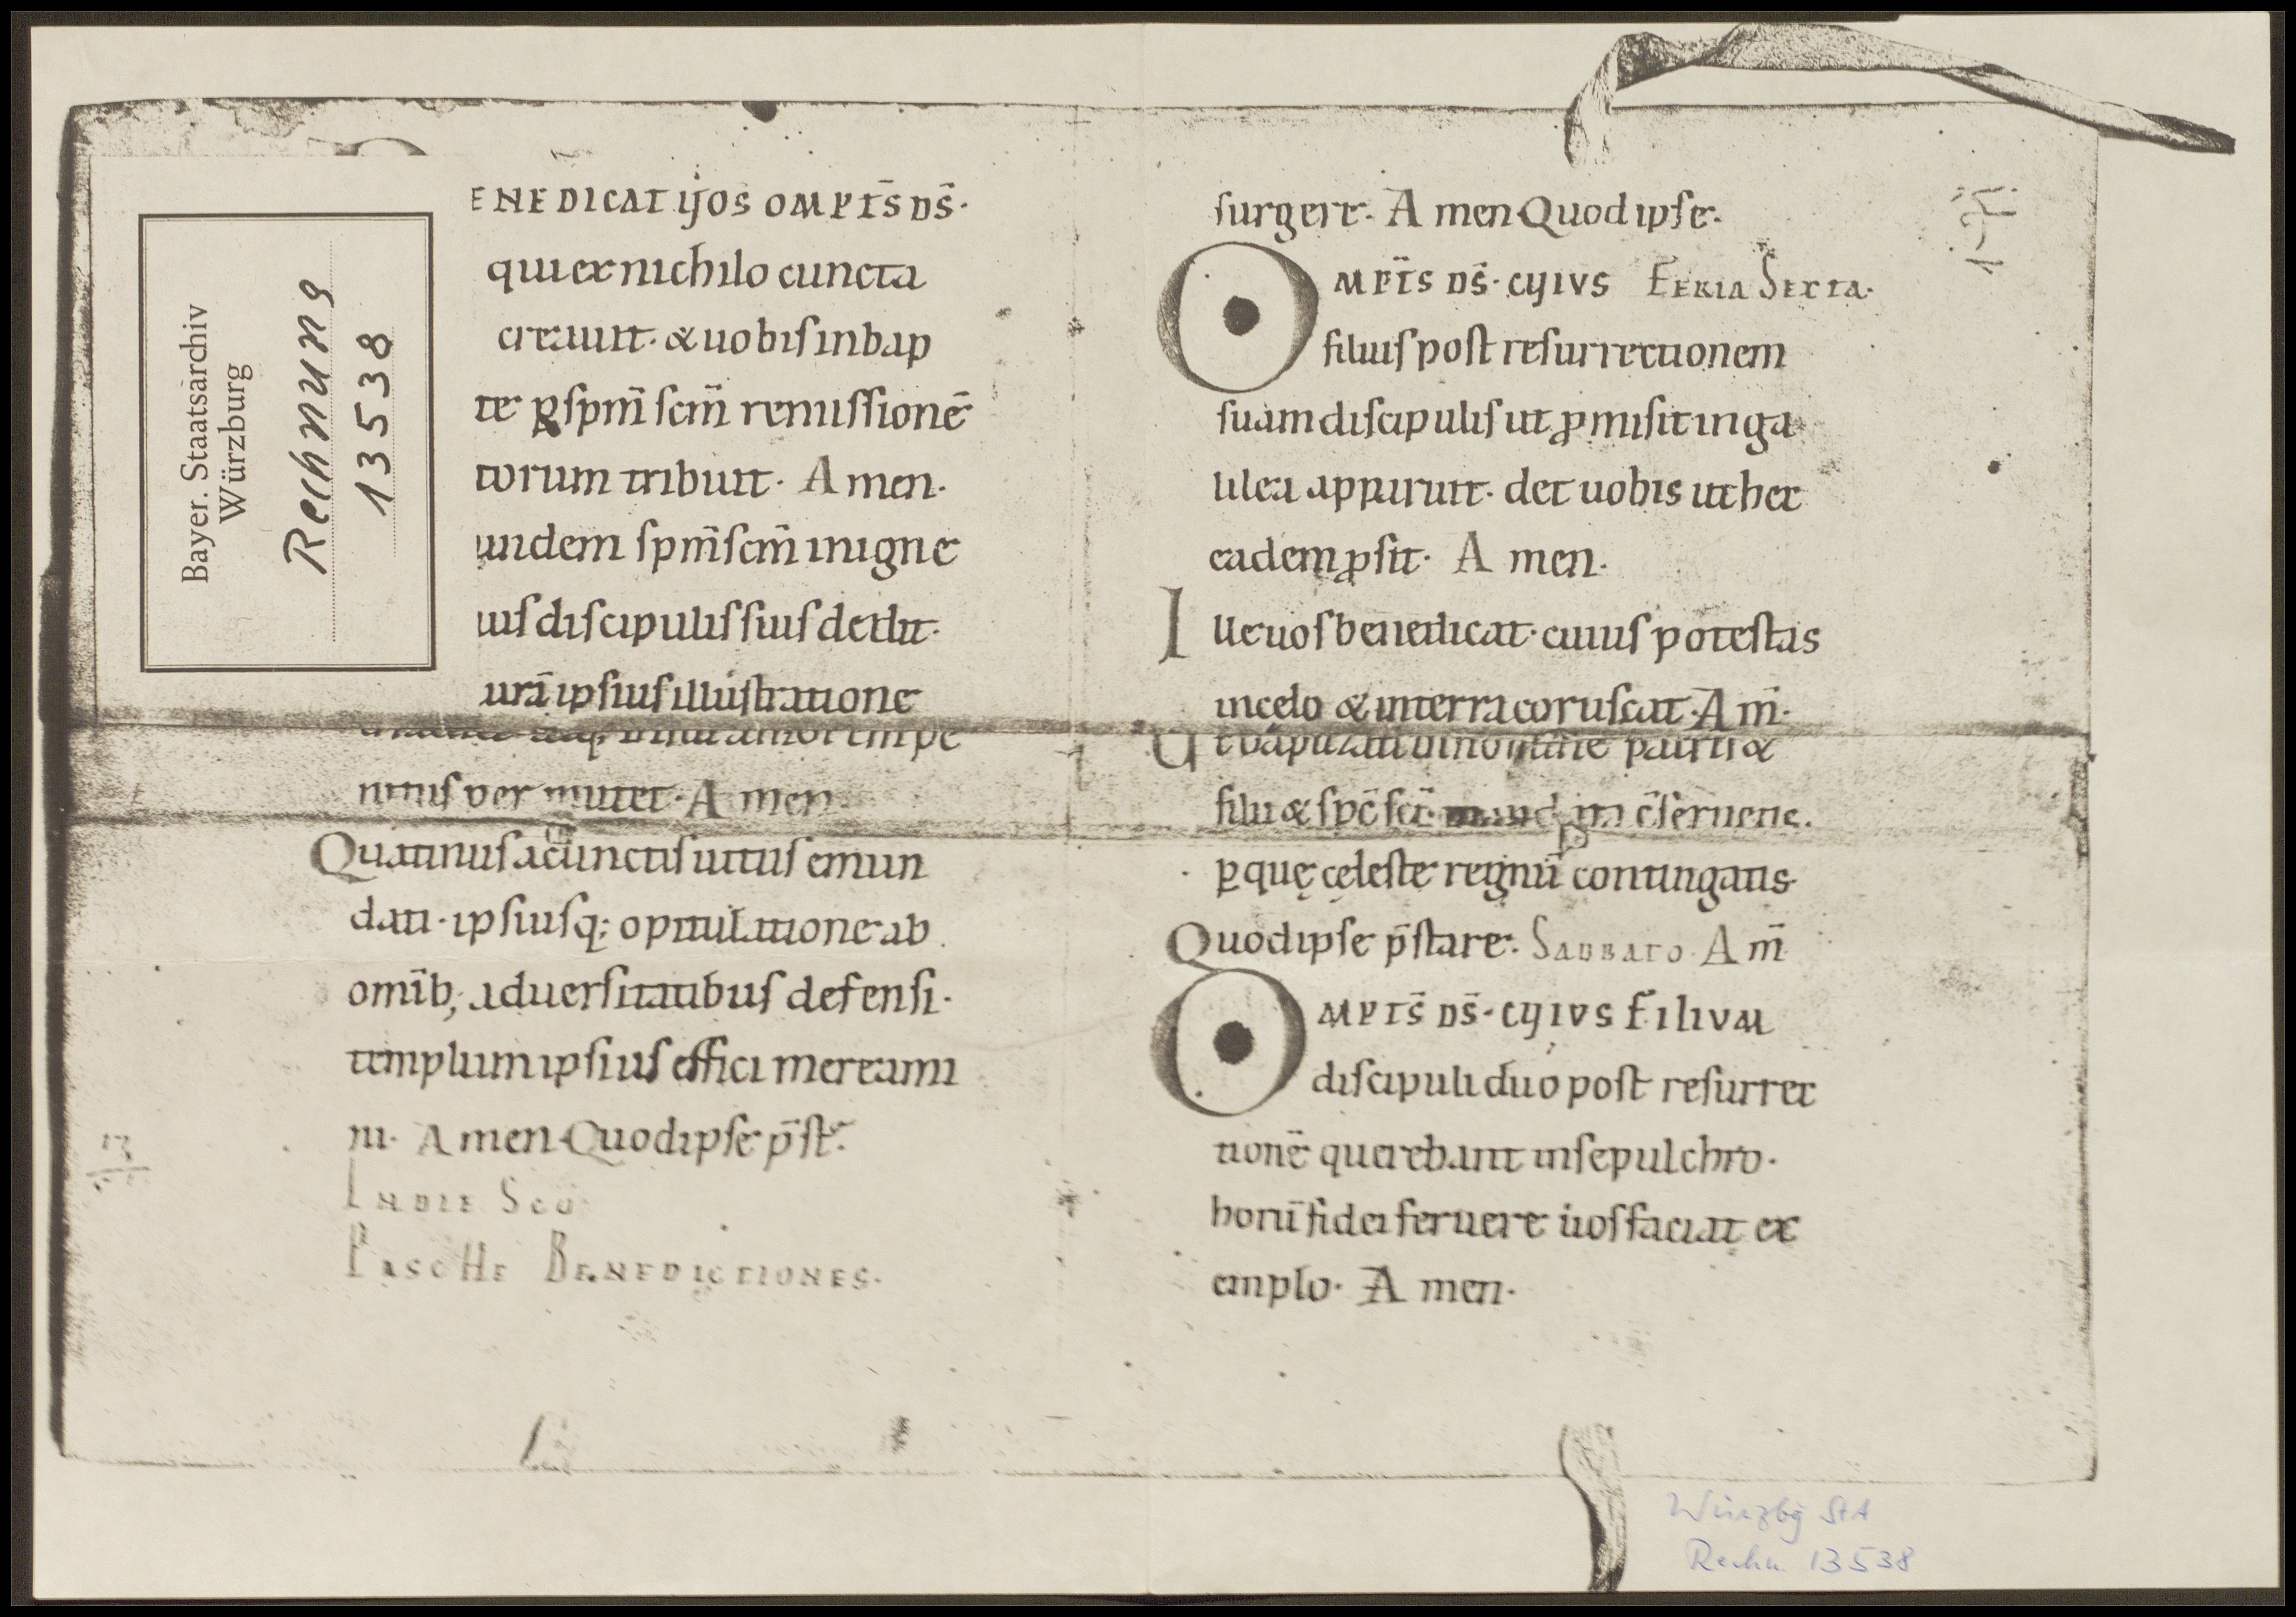 Bayer. Staatsarchiv
Würzburg
Rechnung
13538
ENEDICAT VOS OMPTS̄ DS̄·
qui ex nichilo cuncta
creauit· & uobis in bap
te ꝑ sp̄m sc̄m remissionē
torum tribuit· Amen.
undem sp̄m sc̄m in igne
uis discipulis suis dedit·
urā ipsius illustratione
nitus per mutet· Amen
Quatinus a cunctis uitiis emun
dati· ipsiusq; opitulatione ab
omīb; aduersitatibus defensi·
templum ipsius effici mereami
ni· Amen Quod ipse p̄st̄.
IN DIE SCO
PASCHE BENEDICTIONES.
surgere. Amen Quod ipse.
OMPTS̄ DS̄· CUIUS FERIA SEXTA·
filius post resurrectionem
suam discipulis ut ꝓmisit in ga
lilea apparuit· det uobis ut hec
eadem ꝓsit· Amen.
Ille uos benedicat· cuius potestas
in celo & in terra coruscat· Am̄·
Ut baptizati in nomine patris &
filii & sp̄c sc̄i c̄seruetis.
ꝑ quę cęleste regnū contingatis
Quod ipse p̄stare. SABBATO Am̄
OMPTS̄ DS̄· CUIUS FILIUM
discipuli duo post resurrec
tionē querebant in sepulchro·
horū fidei feruere uos faciat ex
emplo· Amen·
Würzbg StA
Rechn. 13538